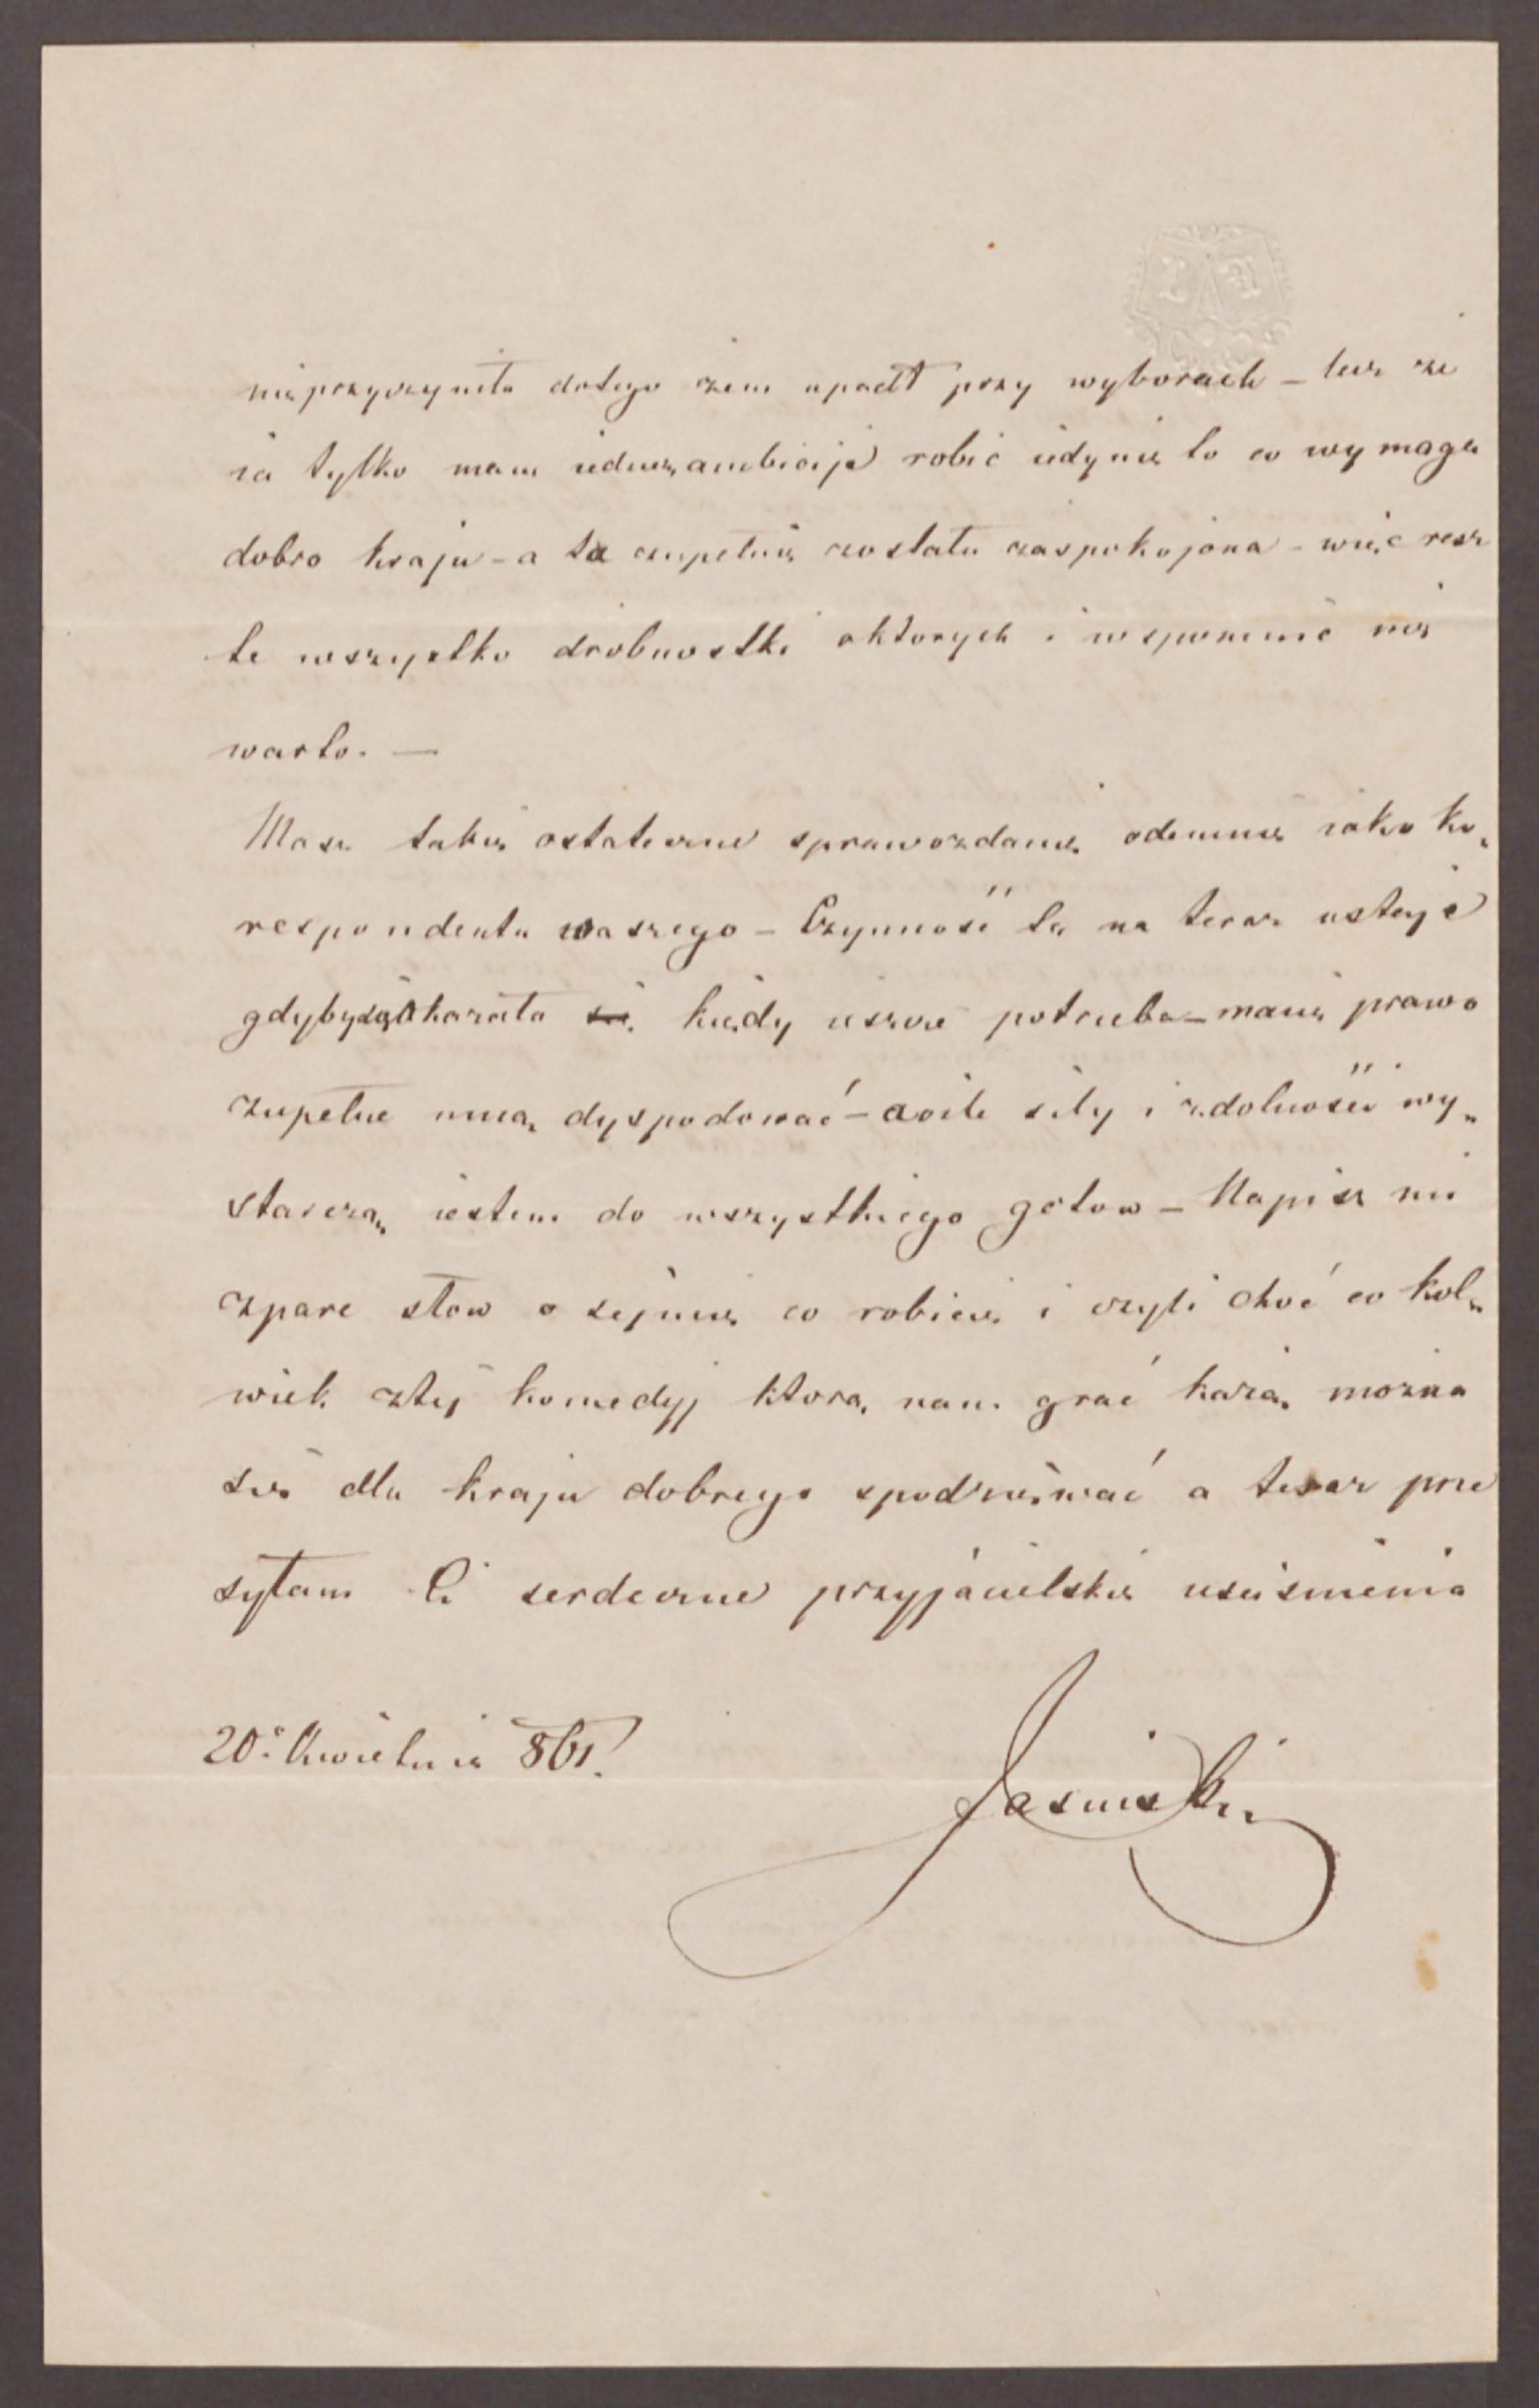 nieprzyczyniła dotego żem upadł przy wyborach – lecz że
ia tylko mam iednę ambicije robić iedynie to co wymaga
dobro kraju – a ta zupełnie została zaspokojona – więc resz
te wszystko drobnostki o których i wspominać nie
warto. —
Masz takie ostateczne sprawozdanie odemnie iako ko„
respondenta waszego – Czynność ta na teraz ustaje
gdyby się okazała kiedy ieszcze potrzeba – macie prawo
zupełne mną dyspodować – a oile siły i zdolności wy„
starczą, iestem do wszystkiego gotow – Napisz mi
zpare słow o sejmie co robicie i czyli choć co kol„
wiek ztej komedyj ktorą nam grać każą można
się dla kraju dobrego spodziewać a teraz prze
syłam Ci serdeczne przyjacielskie uściśnienia
20. Kwietnia 861.
Jasiński